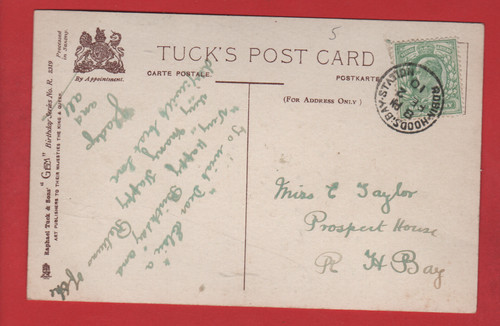 By Appointment.
TUCK'S POST CARD
CARTE POSTALE
POSTKARTE
(FOR ADDRESS ONLY)
5
ROBIN-HOODS-BAY-STATION
Raphael Tuck & Sons' "GEM" Birthday Series No. R. 2329
ART PUBLISHERS TO THEIR MAJESTIES THE KING & QUEEN
Processed in Saxony.
To wish "Dear Elsie" a
"Very Happy Birthday and
many Happy Returns
with best love
Gladys
and all
Miss E Taylor
Prospect House
R H Bay